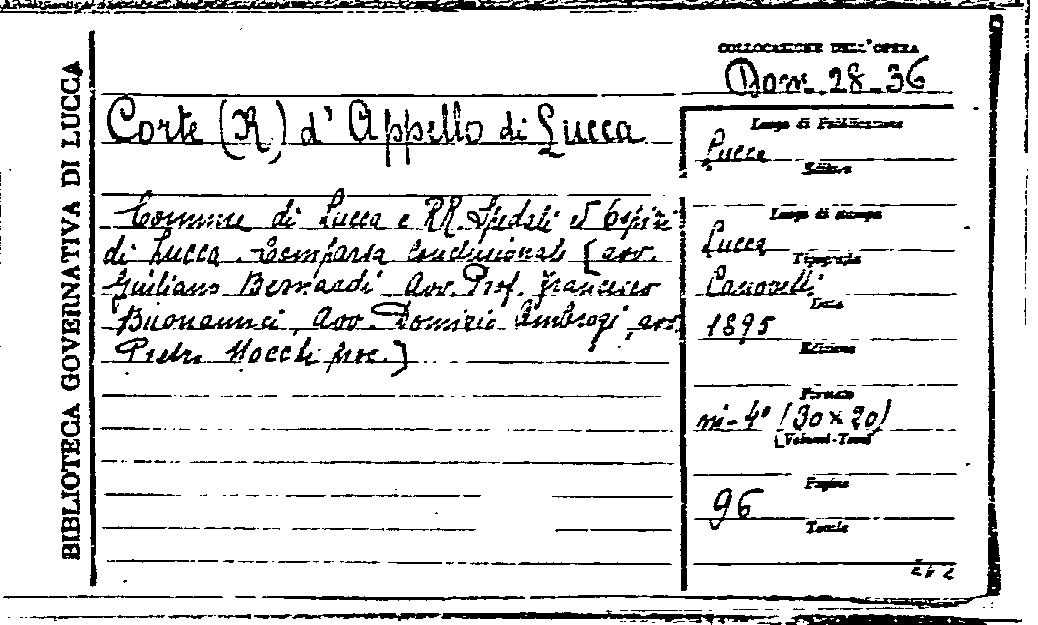 BIBLIOTECA GOVERNATIVA DI LUCCA
COLLOCAZIONE DELL'OPERA
Dom. 28-36
Corte (R.) d'Appello di Lucca
Comune di Lucca e RR. Spedali ed Ospizi
di Lucca. Comparsa conclusionale [avv.
Giuliano Bernardi Avv. Prof. Francesco
Buonamici, Avv. Domizio Ambrogi, avv.
Pietro Mocchi proc.]
Luogo di Pubblicazione
Lucca
Editore
Luogo di stampa
Lucca
Tipografia
Canovetti
Data
1895
Edizione
Formato
in-4° (30×20)
Volumi-Tomi
Pagine
96
Tavole